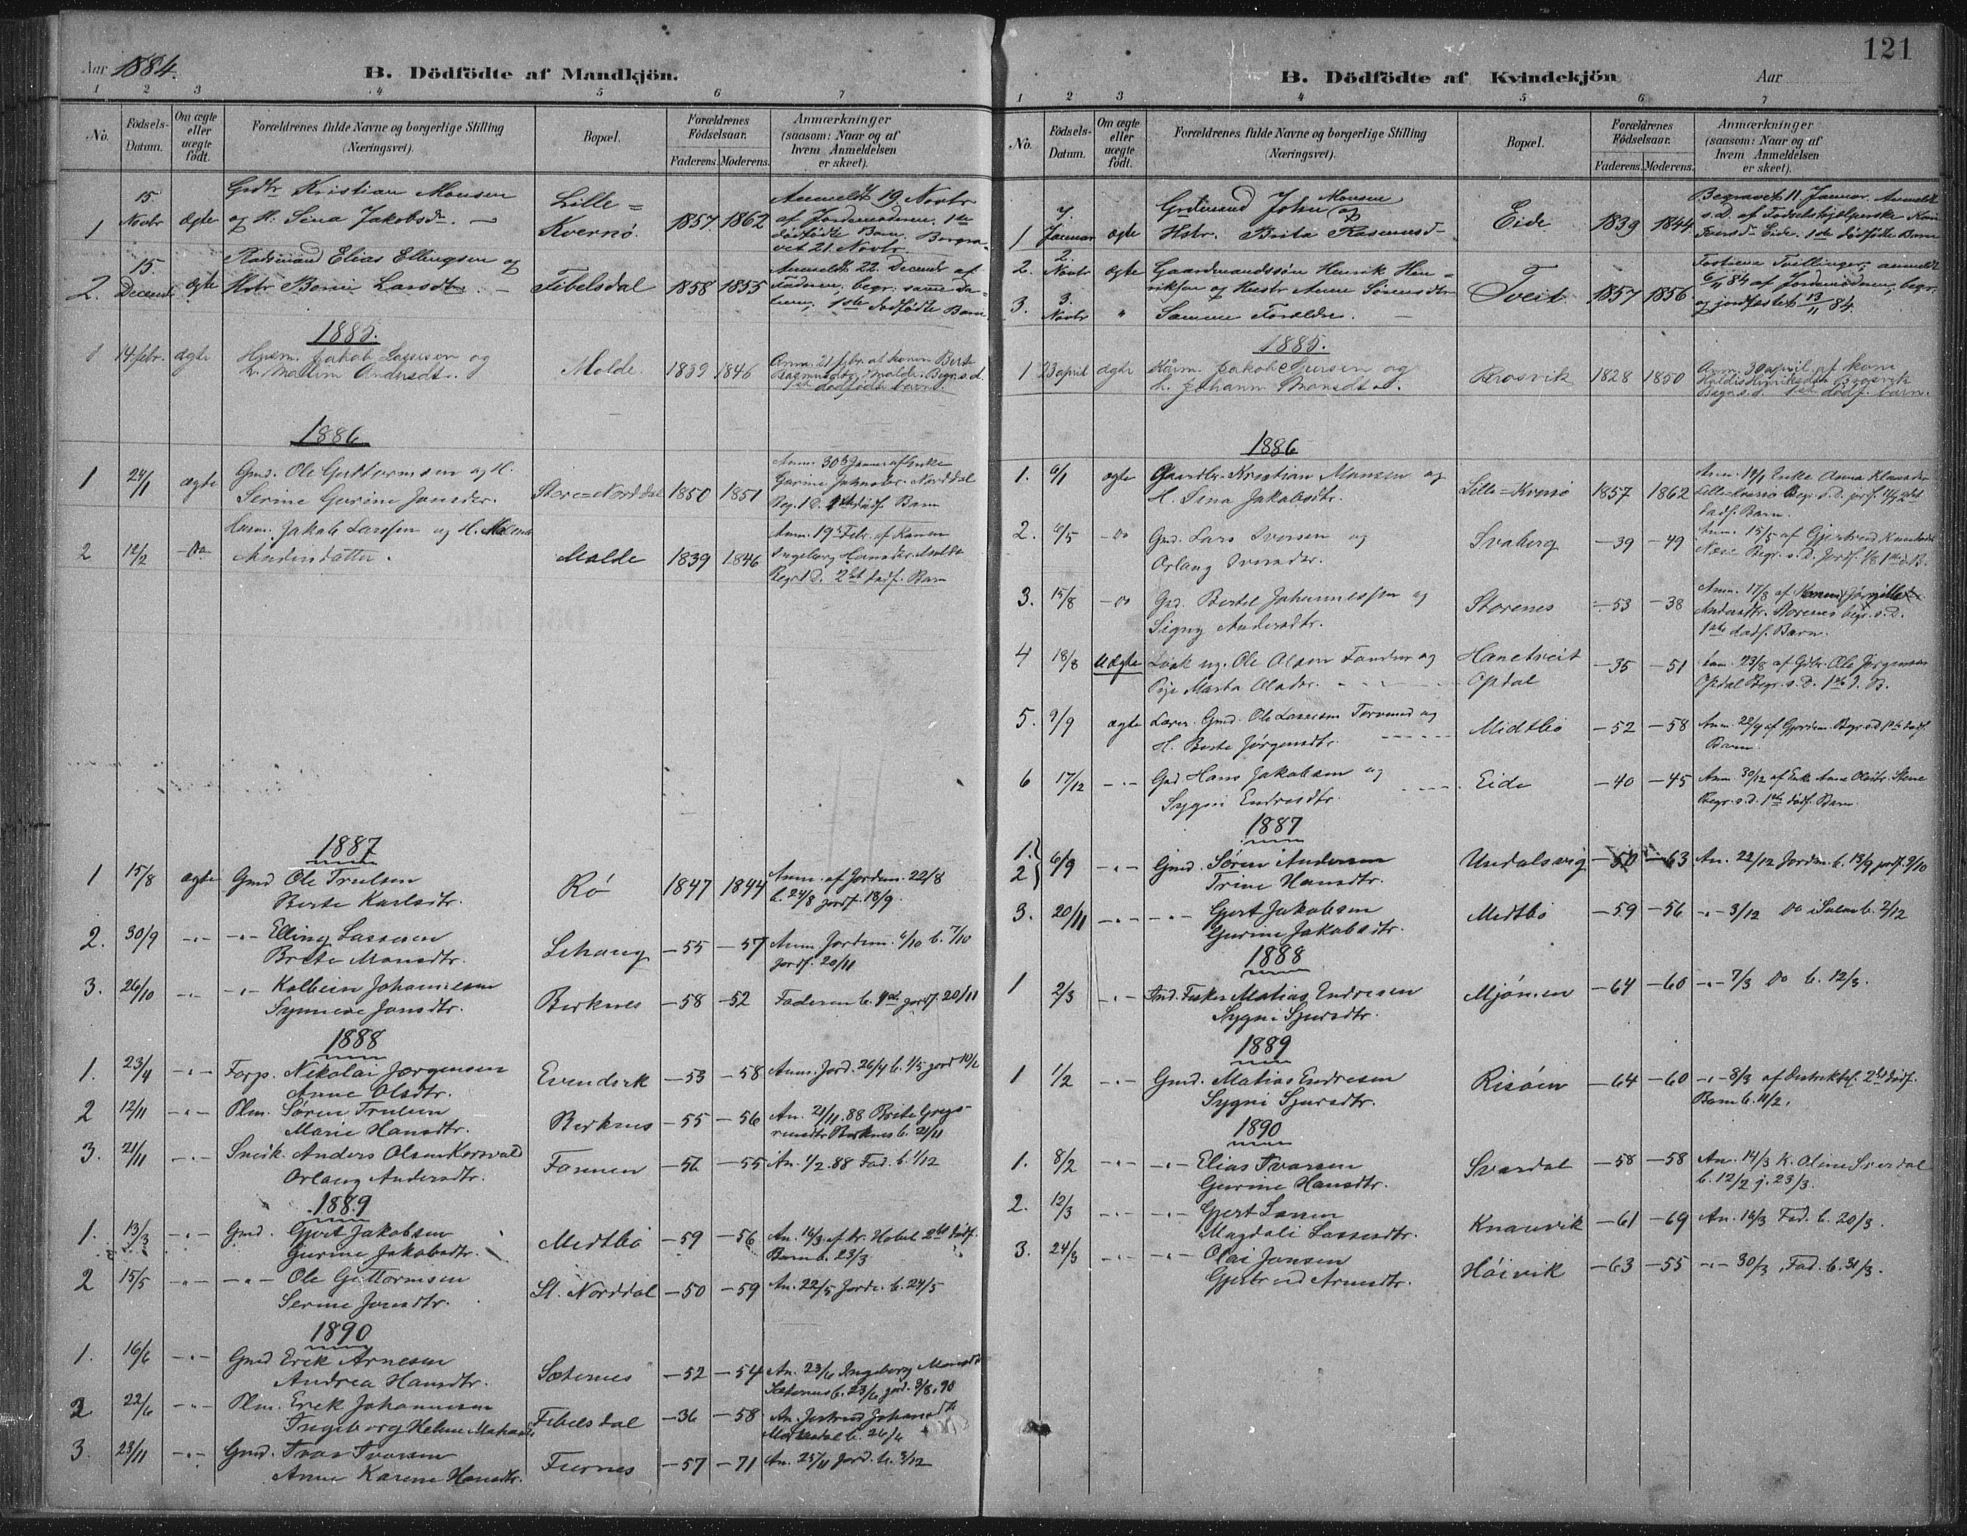 Aar 1884.
B. Dödfödte af Mandkjön.
1 2 3 4 5 6 7
No.
Födsels-
Datum.
Om ægte
eller
uægte
födt.
Forældrenes fulde Navne og borgerlige Stilling
(Næringsvei).
Bopæl.
Forældrenes
Födselsaar.
Faderens. Moderens.
Anmærkninger
(saasom: Naar og af
hvem Anmeldelsen
er skeet).
1 15 Novbr ægte
Grdbr Kristian Monsen
og H. Sina Jakobsdr.
Lille=
Kvernö. 1857 1862
Anmeldt 19 Novbr
af Jordemoderen. 1ste
dödfödte Barn. Begra-
vet 21. Novbr.
2. 15 Decembr ægte
Pladsmand Elias Ellingsen og
Hstr Larsdtr.
Fibelsdal 1858 1855
Anmeldt 22. Decembr af
Faderen, begr. samme Da-
tum, 1ste dödfödte Barn
1885.
1 14 febr. ægte
Husm. Jakob Lassesen og
h. Malene Andersdtr.
Molde. 1839 1846
Anm. 21 febr. af konen Berte
Rasmusdtr Molde. Begr. s. d.
1ste dödfödte barn.
1886.
1 24/1 ægte
Gmd. Ole Guttormsen og H.
Serine Gurine Jonsdtr.
Store=Norddal 1850 1851
Anm. 30te Januar af Enke
Gurine Norddal
dödf. Barn
2 12/2 -Do
Husm. Jakob Larssen og H. Malene
Andersdatter.
Molde 1839 1846
Anm. 19de Febr. af Konen
Ingeborg Hansdtr. Molde
Begr. s. D. 2det dødf. Barn
1887
1 15/8 ægte
Gmd Ole Trulsen
Berte Karlsdtr.
Rö 1847 1844
Anm. af Jordem. 22/8
b. 24/8 jordf. 18/9.
2. 30/9 -"- -"-
Elling Lassesen
Brite Monsdtr.
Lihaug -55 -57
Anm. Jordem. 6/10 b. 7/10
jordf. 20/11
3. 26/10 -"- -"-
Kolbein Johannesen
Synneve Jonsdtr.
Birknes -58 -52
Faderen b. jordf. 20/11
1888
1. 23/4 -"-
Forp. Nikolai Jørgensen
Anne Olsdtr.
Evendvik -53 -58
Anm. Jord. 26/4 b. 1/5 jord 10/6
2 12/11 -"-
Plm. Sören Trulsen
Marie Hansdtr.
Birknes -55 -56
An. 21/11 88 Brite Grego-
riusdtr Birknes b. 21/11
3. 21/11 -"-
Snedk. Anders Olsen Korsvold
Orlaug Andersdtr.
Fonnen -56 -55
An. 1/2.88 Fad. b. 1/12
1889
1. 13/3 -"-
Gmd. Gjert Jakobsen
Gurine Jakobsdtr.
Midtbö -59 -56
An. 14/3 af Kr. Hobel 2det dødf.
Barn b. 23/3
2 15/5 -"- -"-
Ole Guttormsen
Serine Jonsdtr.
St. Norddal -50 -59
An. 22/5 Jorde. b. 24/5
1890
1. 16/6 -"-
Gmd Erik Arnesen
Andrea Hansdtr.
Sæternes -52 -54
An. 23/6 Ingeborg Monsdtr
Sæternes b. 23/6 jord. 3/8.90
2 22/6 -"-
Plm. Erik Johannesen
Ingeborg Helene
Fibelsdal -36 -58
An. Jertrud Johansdtr
b. 26/6
3. 23/11 -"-
Gmd. Ivar Ivarsen
Anne Karine Hansdtr.
Furnes -57 -71
An. 25/11 Jord. b. 3/12
121
B. Dödfödte af Kvindekjön Aar
1 2 3 4 5 6 7
No.
Födsels-
Datum.
Om ægte
eller
uægte
födt.
Forældrenes fulde Navne og borgerlige Stilling
(Næringsvei).
Bopæl.
Forældrenes
Födselsaar.
Faderens. Moderens.
Anmærkninger
(saasom: Naar og af
hvem Anmeldelsen
er skeet).
1 7. Januar ægte
Grdmand John Monsen og
Hstr. Brita Rasmusd-
Eide 1839 1844
Begravet 11 Januar. Anmeldt
s. D. af Fødselshjælperske
Iversd- Eide. 1ste dödfödte Barn
2. 2. Novbr ægte
Gaardmandssön Henrik Hen-
riksen og Hustr Anne Sörensdtr
3. 3. Novbr "
Samme Forældre.
Tveit 1857 1856
Tvillinger, anmeldt
6/11 84 af Jordemoderen, begr.
og jordfæstet 13/11 84.
1885.
1 23 april ægte
Jakob Iversen og
h. Johanne Monsdtr.
Brosvik 1828 1850
Anm. 30 april af kone
Brosvik
Begr. s. d. 1ste dödf. barn.
1886
1. 6/1 ægte
Gaardbr. Kristian Monsen og
H. Sina Jakobsdtr.
Lille=Kvernö 1857 1862
Anm. Enke Anna
Lille=Kvernö Begr. s. D. 2det
dødf. Barn.
2. 6/5 -Do
Gmd. Lars Iversen og
Orlaug Iversdtr.
Svaberg -39 -49
Anm. 15/5 af Gjertrud
Begr. s. D.
3. 15/8 -Do
Gmd. Bertel Johannessen og
Signy Andersdtr.
Storenes -53 -38
Anm. 17/8 af Konen
Andersdtr. Storenes begr. s. D.
1ste dødf. Barn.
4 18/8 Uægte
Ole Olsen og
Pige Marta Olsdtr.
Hanetveit
Opdal -35 -51
Anm. 23/8 af Gdbr. Ole Jørgensen
Opdal Begr. s. D. 1ste d. B.
5. 9/9 ægte
Gmd. Ole Lassesen og
H. Berte Jørgensdtr.
Midtbö -52 -58
Anm. 22/9 af Begr. s. d. 1ste dødf.
Barn.
6 17/12 -"-
Gmd Hans Jakobsen og
Sygni Endresdtr.
Eide -40 -45
Anm. 30/12 af Enke Anne Olsdtr. Steine
Begr. s. d. 1ste dødf. Barn.
1887
1.
2 6/9 -"-
Gmd. Søren Andersen
Trine Hansdtr.
Undalsvig -50 -63
An. 22/12 Jordem b. 13/9 jordf. 2/10
3. 20/11 -"- -"-
Gjert Jakobsen
Gurine Jakobsdtr.
Midtbö -59 -56
-"- 3/12 Do b. 2/12
1888
1 2/3 -"-
Ind. Fisker Matias Endresen
Sygni Sjursdtr.
Mjömen -64 -60
-"- 7/3 Do b. 12/3.
1889
1 1/2 -"-
Gmd. Matias Endresen
Sygni Sjursdtr.
Risöen -64 -60
-"- 8/3 af Distriktsl. 2det dödf.
Barn b. 11/2.
1890
1. 8/2 -"- -"-
Elias Ivarsen
Gurine Hansdtr.
Sværdal -58 -58
An. 14/3 K. Oline Sverdal
b. 12/2 j. 23/3.
2. 12/3 -"- -"-
Gjert Larsen
Magdali Lassesdtr.
Knarvik -61 -69
An. 16/3 Fad. b. 20/3.
3. 24/3 -"- -"-
Olai Jonsen
Gjertrud Arnesdtr.
Höivik -63 -55
-"- 30/3 Fad. b. 31/3.